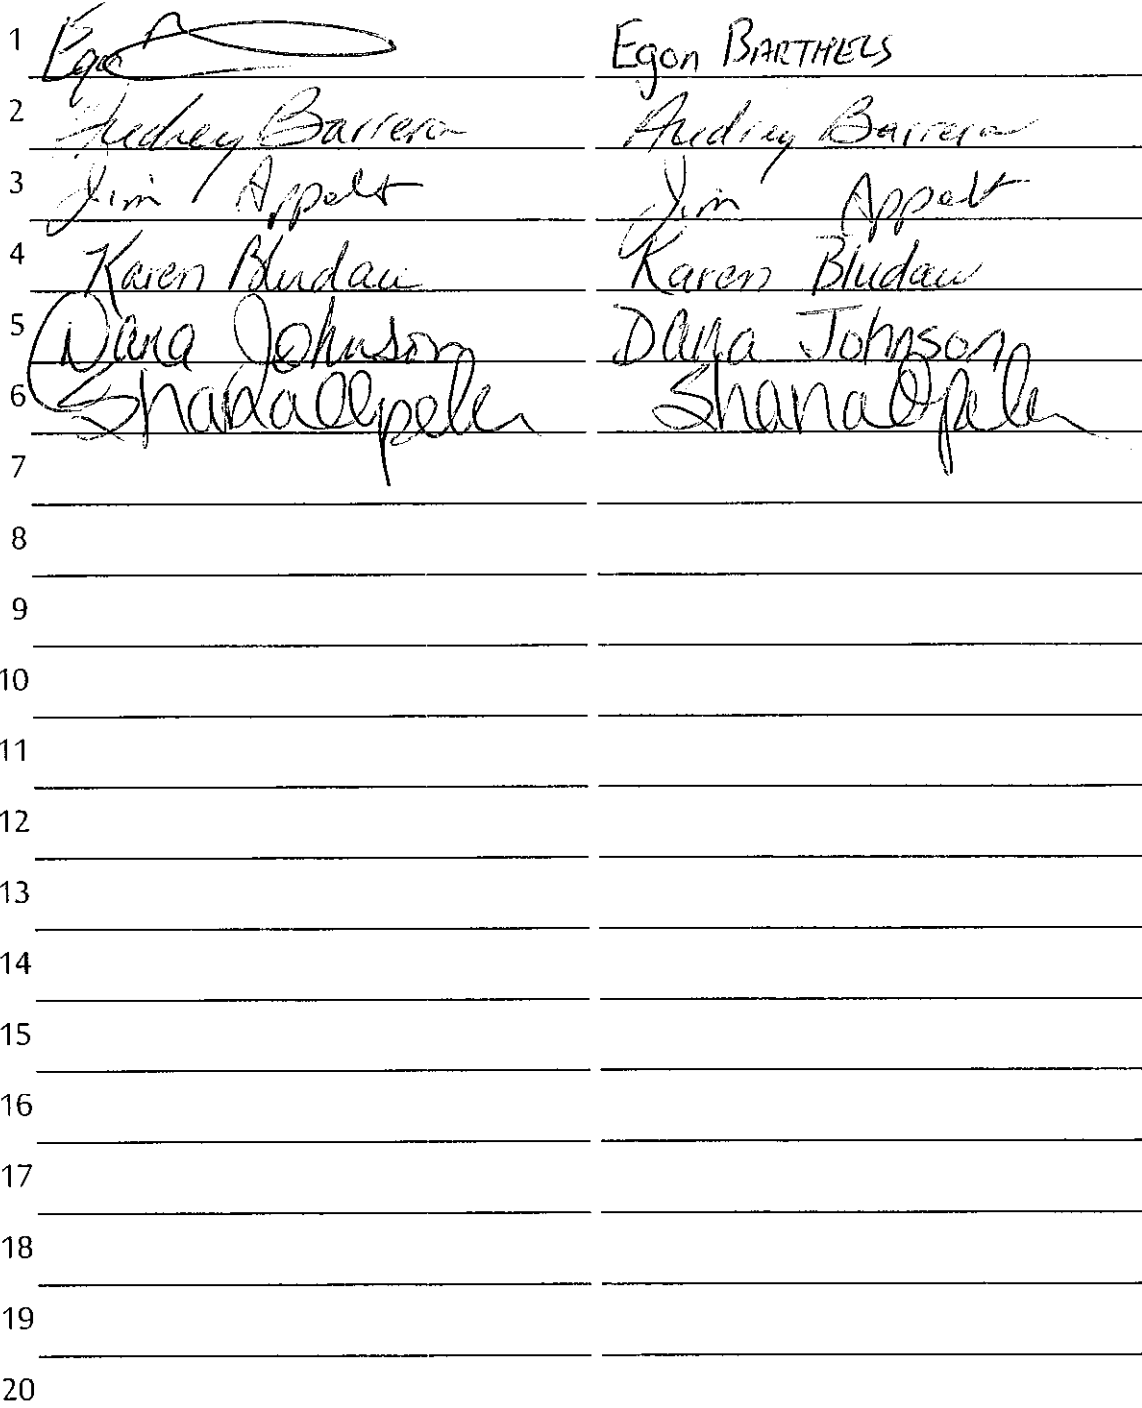 1 Egon Egon BARTHELS
2 Audrey Barrera Audrey Barrera
3 Jim Appelt Jim Appelt
4 Karen Bludau Karen Bludau
5 Dana Johnson Dana Johnson
6 Shana Shana
7
8
9
10
11
12
13
14
15
16
17
18
19
20